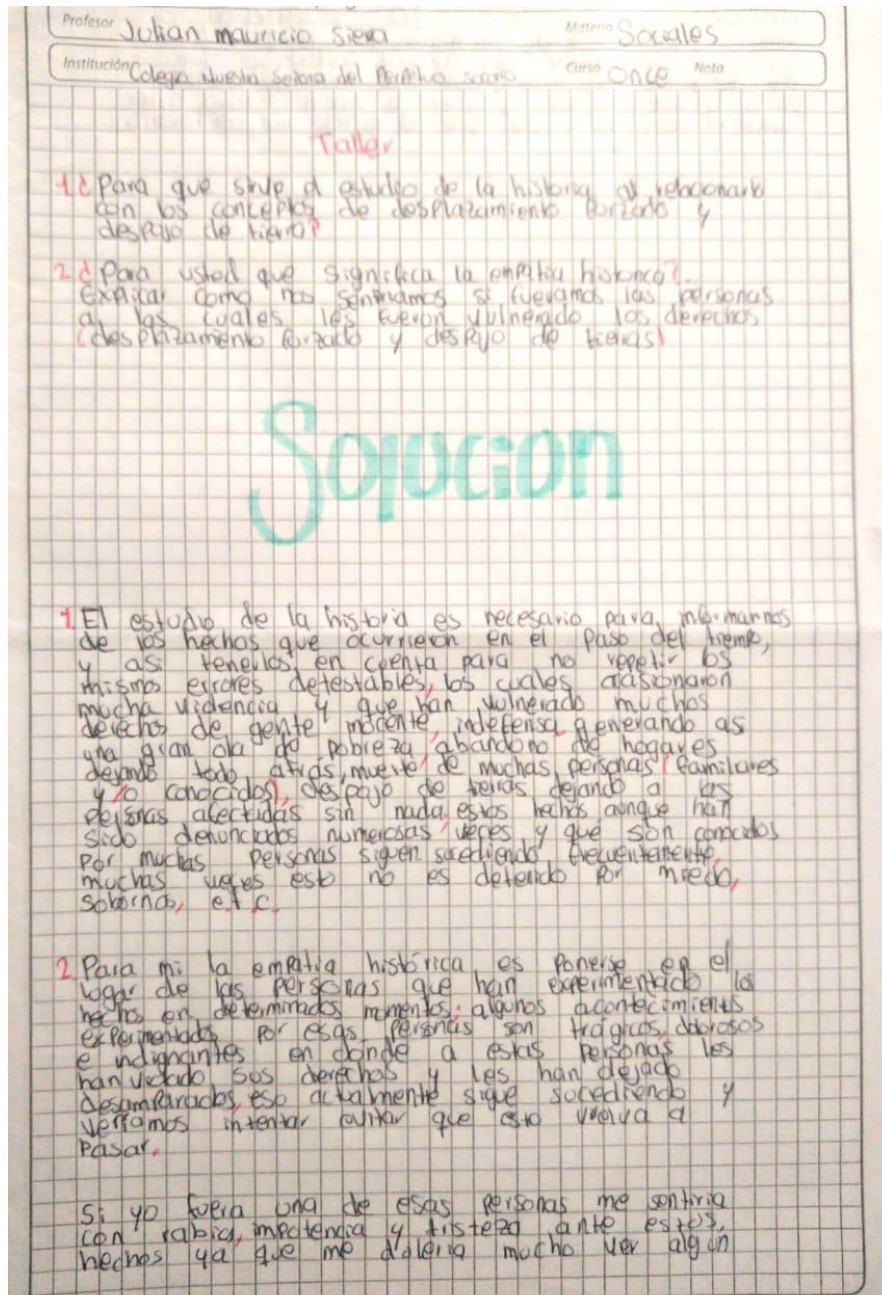 Profesor Julian mauricio Siera Materia Sociales
Institución Colegio Nuestra señora del Perpetuo socorro Curso Once Nota
Taller
1 ¿ Para que sirve el estudio de la historia al relacionarlo
con los conceptos de desplazamiento forzado y
despojo de tierra?
2 ¿ Para usted que significa la empatia historica?.
Explicar como nos sentiriamos si fueramos las personas
a las cuales les fueron vulnerado los derechos
(desplazamento forzado y despojo de tierras)
Solucion
1 El estudio de la historia es necesario para informarnos
de los hechos que ocurrieron en el paso del tiempo,
y asi tenerlos en cuenta para no repetir los
mismos errores detestables, los cuales ocasionaron
mucha violencia y que han vulnerado muchos
derechos de gente inocente, indefensa, generando asi
una gran ola de pobreza, abandono de hogares
dejando todo atrás, muerte de muchas personas (familiares
y/o conocidos), despojo de tierras dejando a las
personas afectadas sin nada, estos hechos aunque han
sido denunciados numerosas veces, y que son conocidos
por muchas personas siguen sucediendo frecuentemente,
muchas veces esto no es detenido por miedo,
sobornos, e.t.c.
2 Para mi la empatia histórica, es ponerse en el
lugar de las personas que han experimentado los
hechos en determinados momentos; algunos acontecimientos
experimentados por esas personas son trágicos, dolorosos
e indignantes en donde a estas personas les
han violado sus derechos y les han dejado
desamparados, eso actualmente sigue sucediendo y
intentar evitar que esto vuelva a
pasar.
Si yo fuera una de esas personas me sentiria
con rabia, impotencia y tristeza ante estos,
hechos ya que me doleria mucho ver algun